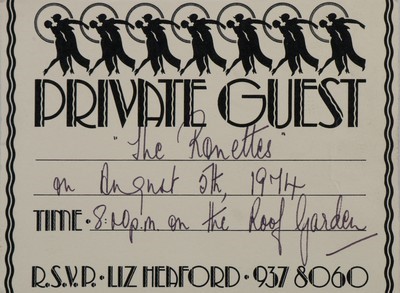 PRIVATE GUEST
"The Ronettes"
on August 5th, 1974
TIME · 8:00p.m. on the Roof Garden
R.S.V.P. · LIZ HEAFORD · 937 8060